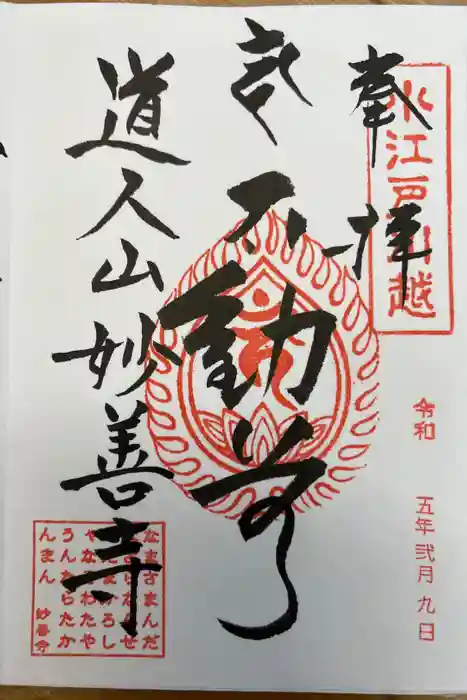 奉拝
小江戸川越
不動尊
道人山妙善寺
令和 五年弐月九日
なまさまんだ
ばさらだんせ
んだまかろし
やなそわたや
うんたらたか
んまん
妙善寺